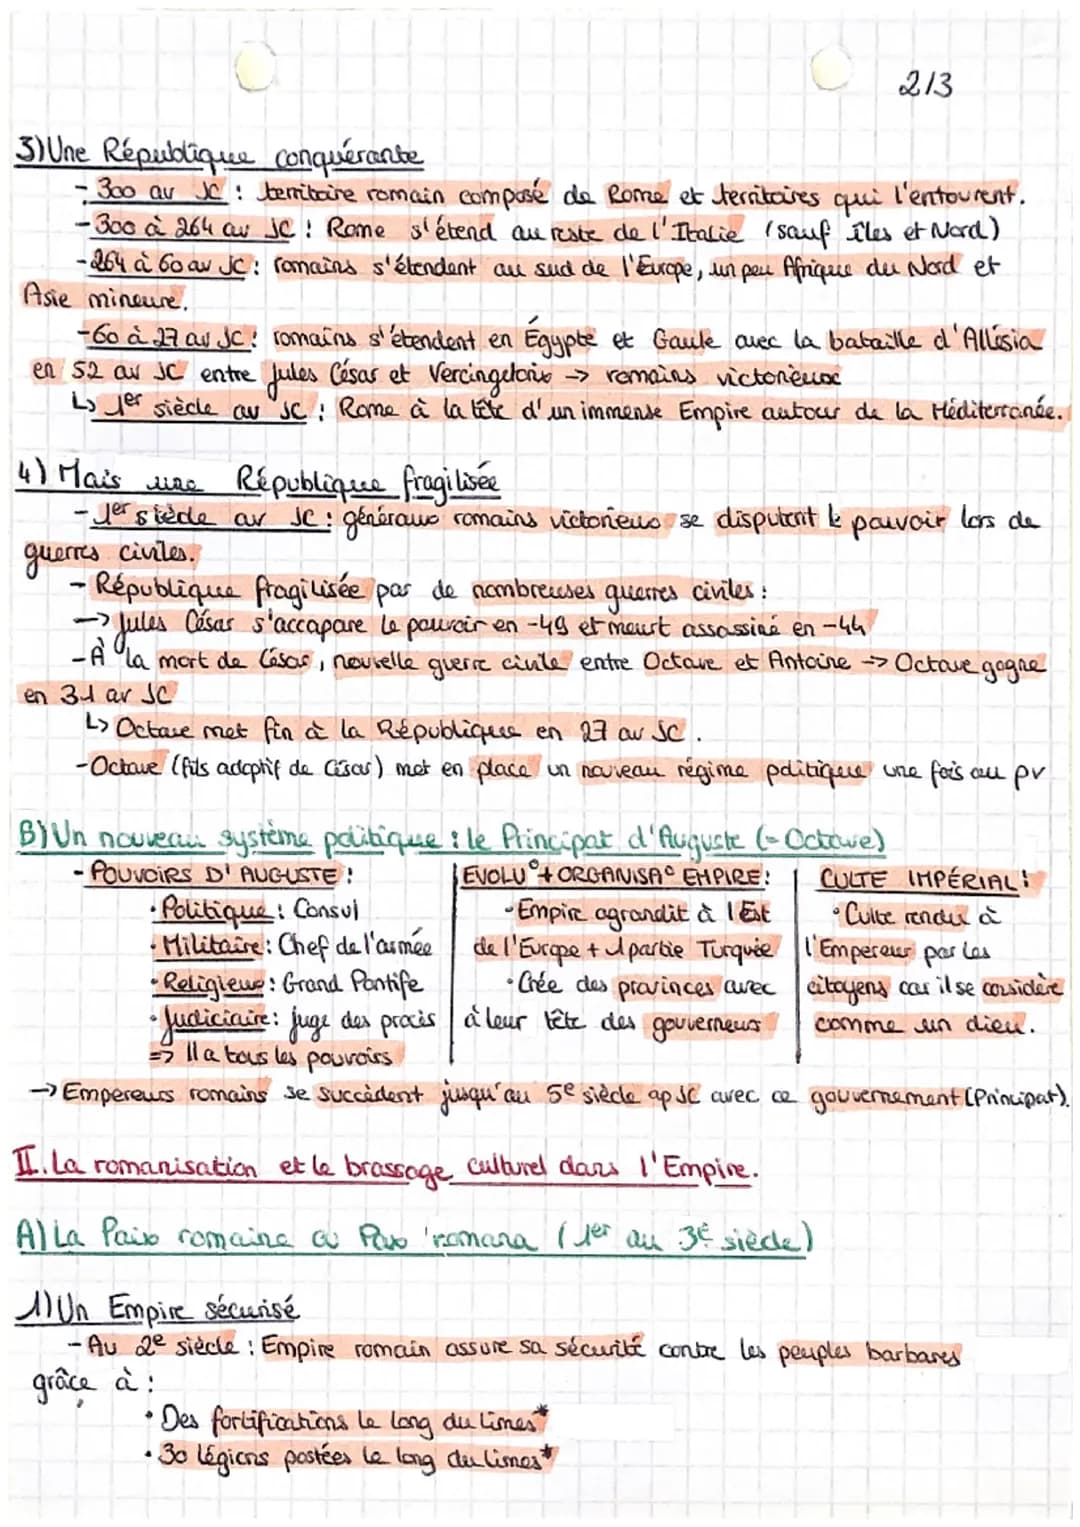 2/3
3) Une République conquérante
- 300 av JC : territoire romain composé de Rome et territoires qui l'entourent.
- 300 à 264 av JC : Rome s'étend au reste de l'Italie (sauf îles et Nord)
- 264 à 60 av JC : romains s'étendent au sud de l'Europe, un peu Afrique du Nord et
Asie mineure.
- 60 à 27 av JC : romains s'étendent en Égypte et Gaule avec la bataille d'Allésia
en 52 av JC entre Jules César et Vercingétorix -> romains victorieux
↳ 1er siècle av JC : Rome à la tête d'un immense Empire autour de la Méditerranée.
4) Mais une République fragilisée
- 1er siècle av JC : généraux romains victorieux se disputent le pouvoir lors de
guerres civiles.
- République fragilisée par de nombreuses guerres civiles :
-> Jules César s'accapare le pouvoir en -49 et meurt assassiné en -44
- À la mort de César, nouvelle guerre civile entre Octave et Antoine -> Octave gagne
en 31 av JC
↳ Octave met fin à la République en 27 av JC.
- Octave (fils adoptif de César) met en place un nouveau régime politique une fois au pv
B) Un nouveau système politique : le Principat d'Auguste (= Octave)
- POUVOIRS D'AUGUSTE :
· Politique : Consul
· Militaire : Chef de l'armée
· Religieux : Grand Pontife
· Judiciaire : juge des procès
=> Il a tous les pouvoirs
EVOLU° + ORGANISA° EMPIRE :
· Empire agrandit à l'Est
de l'Europe + 1 partie Turquie
· Crée des provinces avec
à leur tête des gouverneurs
CULTE IMPÉRIAL :
· Culte rendu à
l'Empereur par les
citoyens car il se considère
comme un dieu.
-> Empereurs romains se succèdent jusqu'au 5e siècle ap JC avec ce gouvernement (Principat).
II. La romanisation et le brassage culturel dans l'Empire.
A) La Paix romaine ou Pax romana (1er au 3e siècle)
1) Un Empire sécurisé
- Au 2e siècle : Empire romain assure sa sécurité contre les peuples barbares
grâce à :
· Des fortifications le long du limes*
· 30 légions postées le long du limes*